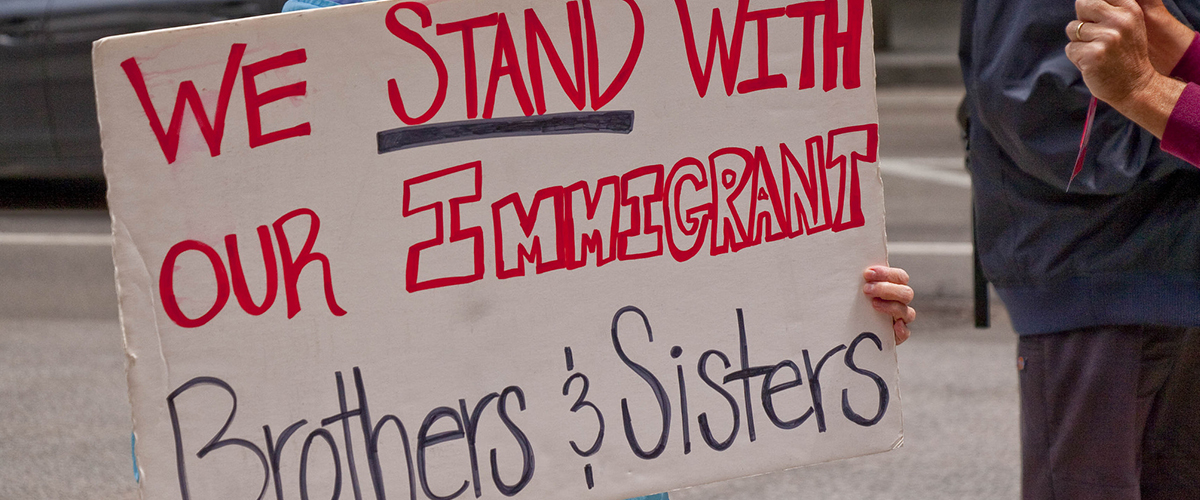 WE STAND WITH
OUR IMMIGRANT
Brothers & Sisters